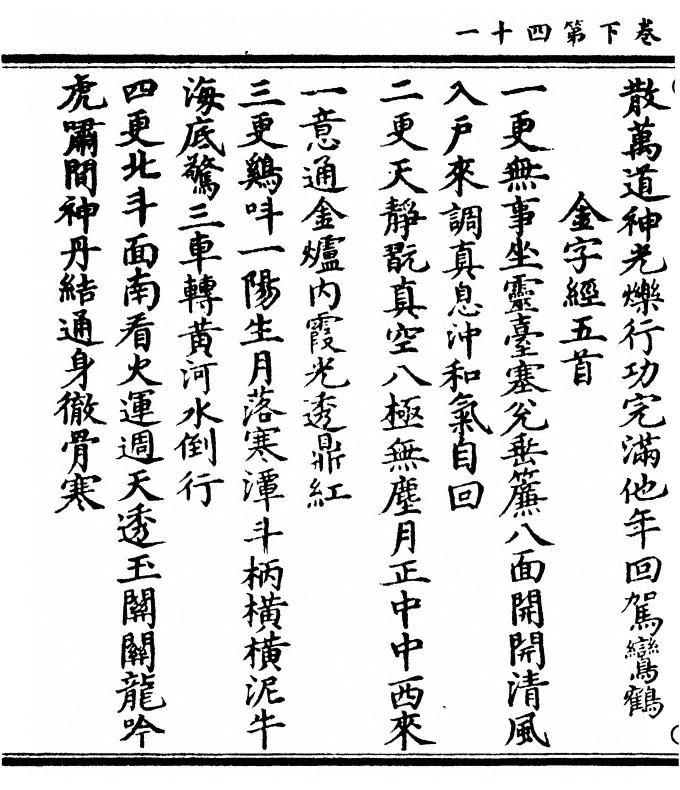 卷下第四十一
散萬道神光爍行功完滿他年回駕鸞鶴
金字經五首
一更無事坐靈臺塞兊垂簾八面開開清風
入戶來調真息沖和氣自回
二更天靜翫真空八極無塵月正中中西來
一意通金爐內霞光透鼎紅
三更鷄呌一陽生月落寒潭斗柄橫橫泥牛
海底驚三車轉黃河水倒行
四更北斗面南看火運週天透玉關關龍吟
虎嘯間神丹結通身徹骨寒